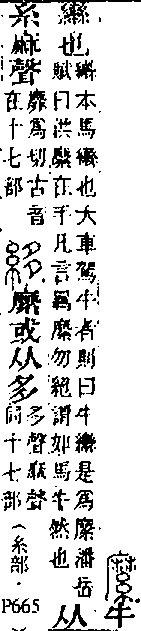 縻牛
轡也轡本馬轡也大車駕牛者則曰牛轡是爲縻潘岳
賦曰洪縻在手凡言羈縻勿絕謂如馬牛然也从
糸麻聲靡爲切古音
在十七部縻或从多多聲麻聲
同十七部（糸部·
P665